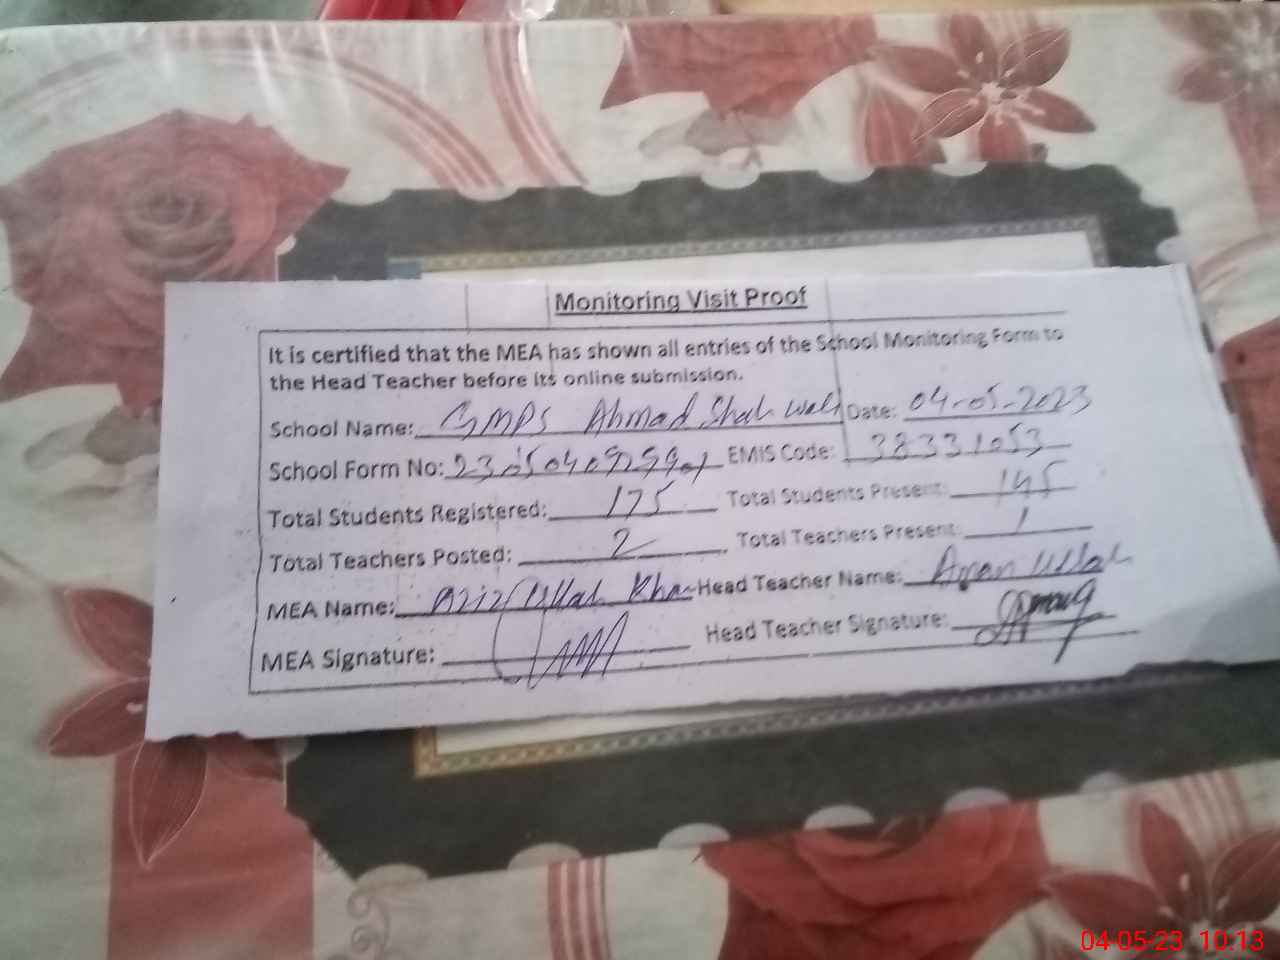 Monitoring Visit Proof
It is certified that the MEA has shown all entries of the School Monitoring Form to
the Head Teacher before its online submission.
School Name: GMPS Ahmad Shah Wali Date: 04-05-2023
School Form No: EMIS Code: 38331053
Total Students Registered: 175 Total Students Present: 145
Total Teachers Posted: 2 Total Teachers Present: 1
MEA Name: Aziz Ullah Khan Head Teacher Name: Ullah
MEA Signature: Head Teacher Signature:
04-05-23 10:13